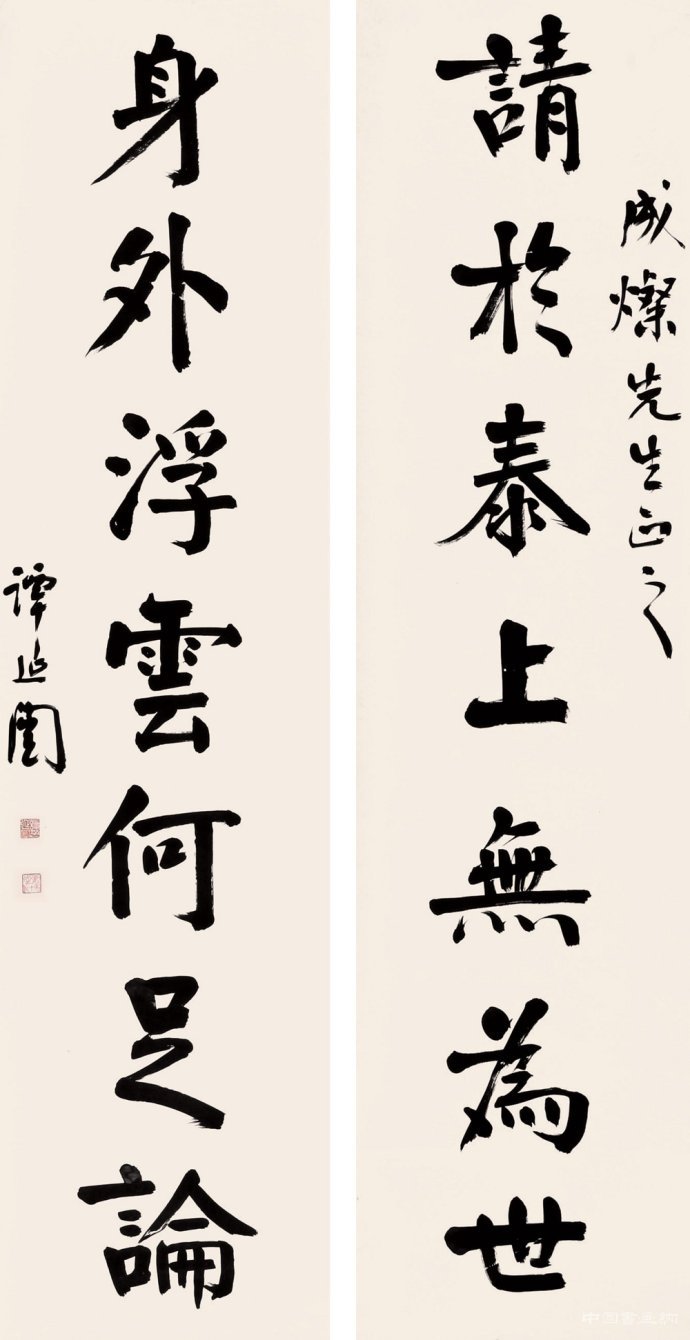 成燦先生正之
請於泰上無為世
身外浮雲何足論
譚延闓
中国書画網